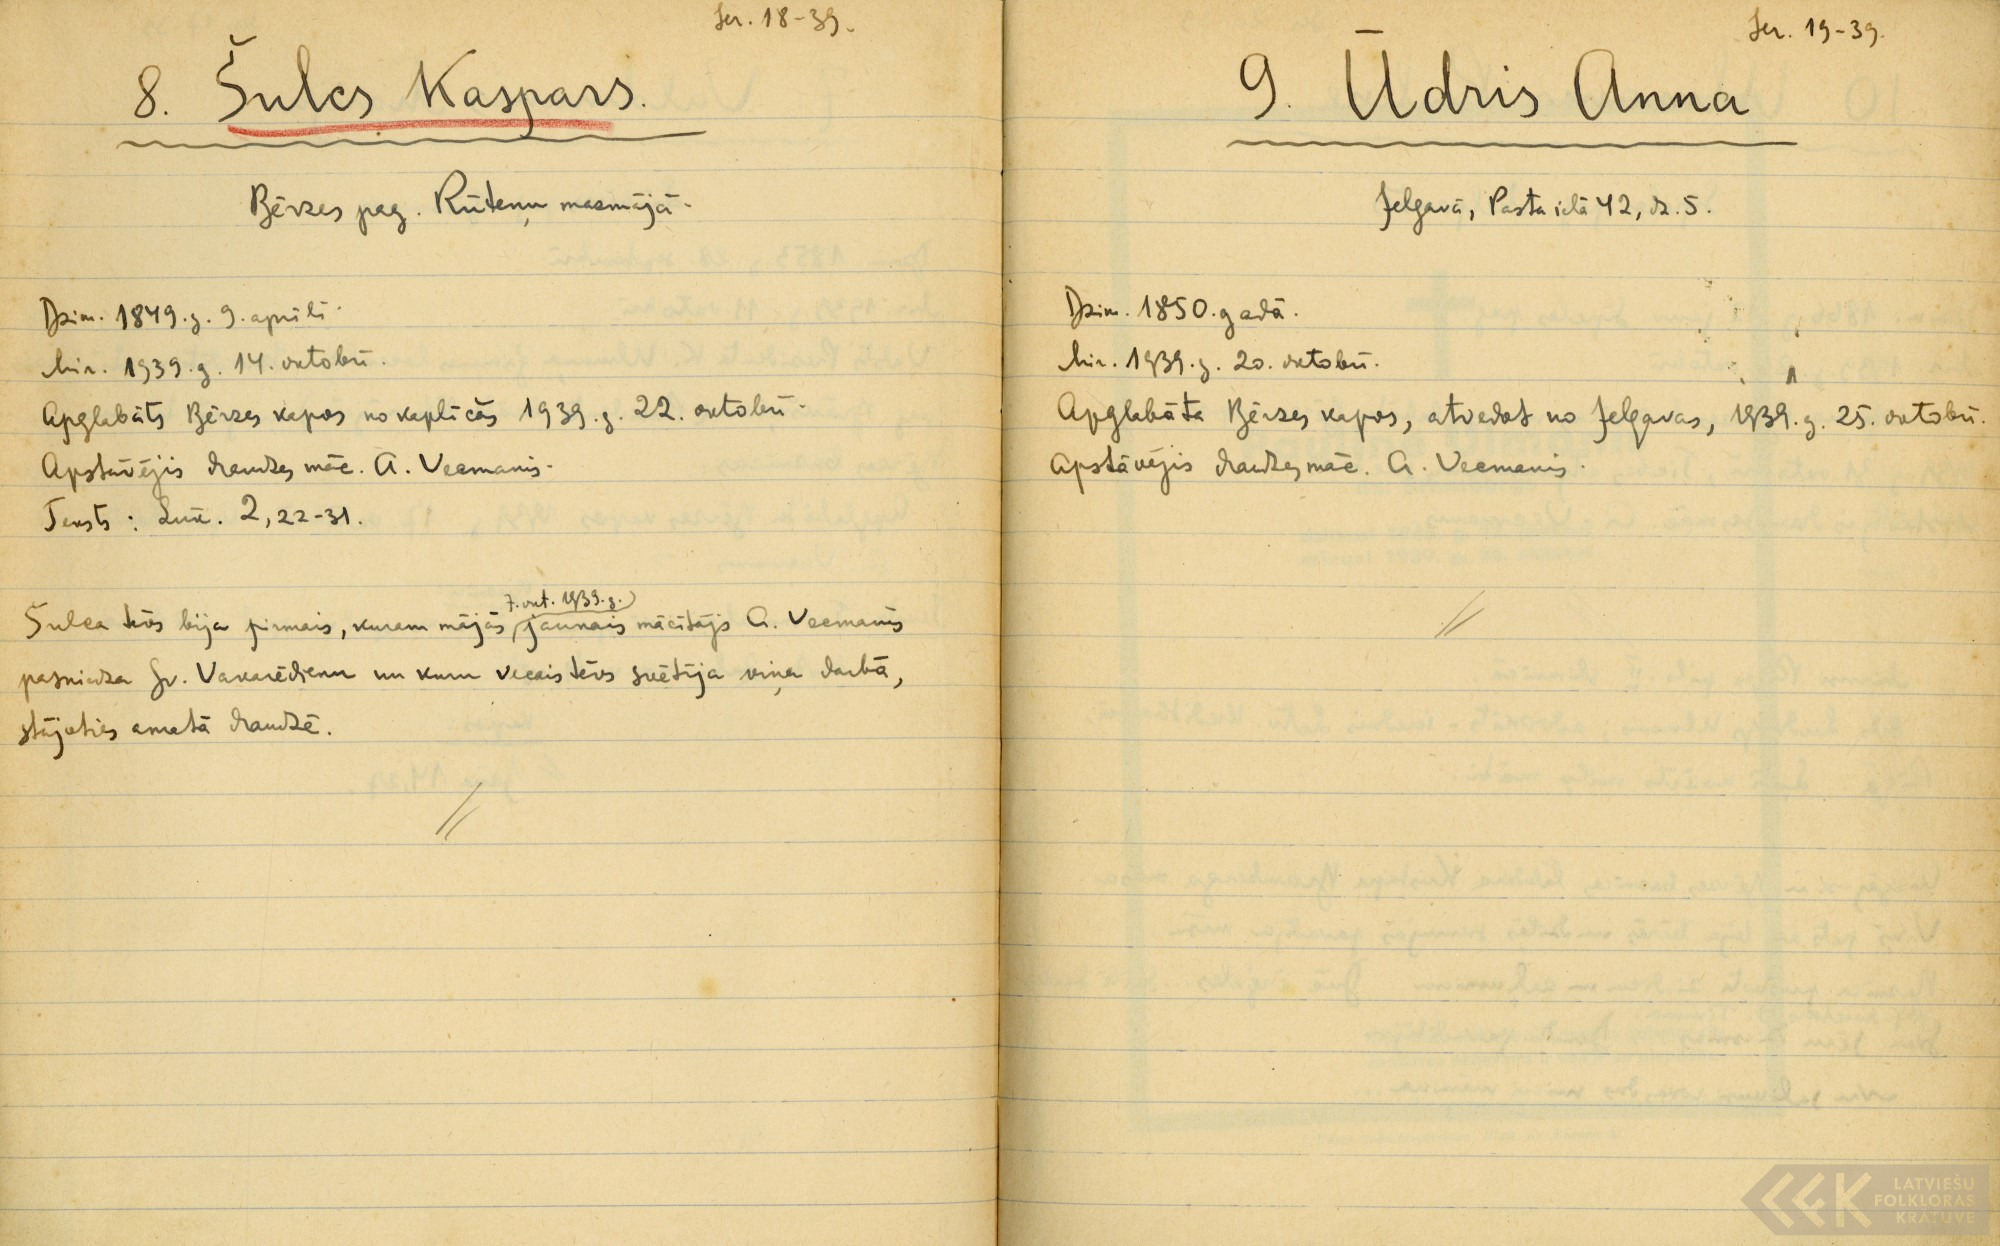 Ser. 18-39.
8. Šulcs Kaspars.
Bērzes pag. Rūteņu mazmājā.
Dzim. 1849. g. 9. aprīlī.
Mir. 1939. g. 14. oktobrī.
Apglabāts Bērzes kapos no kapličas 1939. g. 22. oktobrī.
Apstāvējis draudzes māc. A. Vecmanis.
Teksts: Luk. 2, 22-31.
7. okt. 1939. g.
Šulca tēvs bija pirmais, kuram mājās jaunais mācītājs A. Vecmanis
pasniedza Sv. Vakarēdienu un kuru vecais tēvs svētīja viņa darbā,
stājoties amatā draudzē.
Ser. 19-39.
9. Ūdris Anna
Jelgavā, Pasta ielā 42, dz. 5.
Dzim. 1850. gadā.
Mir. 1939. g. 20. oktobrī.
Apglabāta Bērzes kapos, atvedot no Jelgavas, 1939. g. 25. oktobrī.
Apstāvējis draudzes māc. A. Vecmanis.
LATVIEŠU
FOLKLORAS
KRĀTUVE